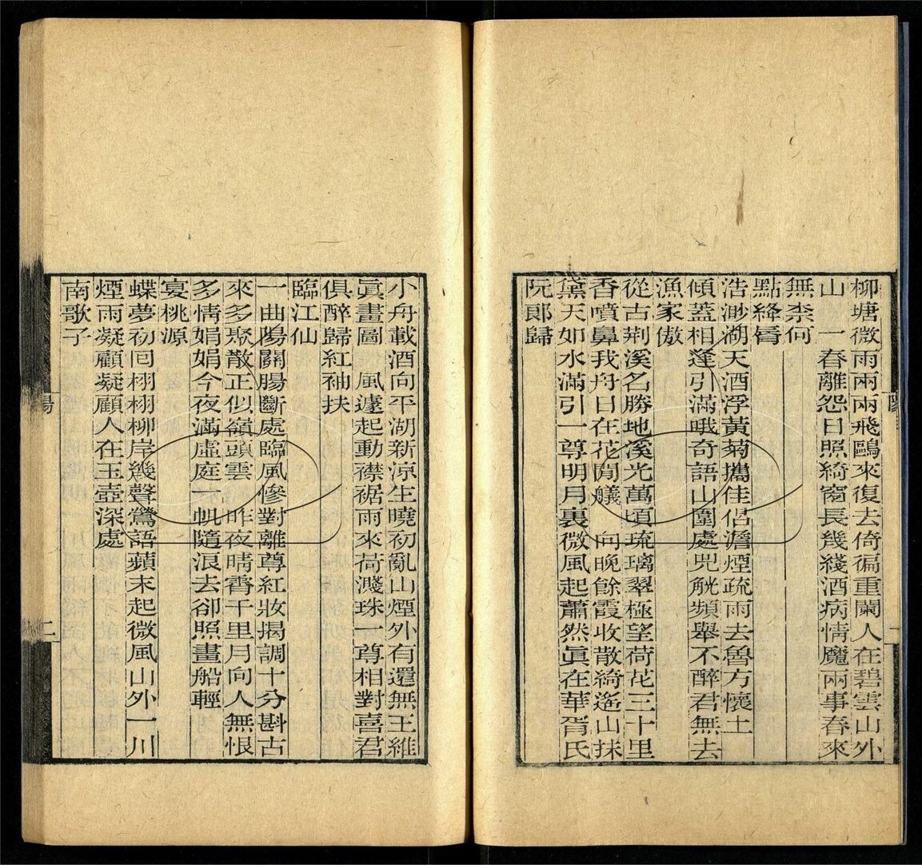 柳塘微雨兩兩兩飛鷗來復去倚徧重闌人在碧雲山外
山　一春離怨日照綺窗長幾綫酒病情魔兩事春來
無柰何
點絳脣
浩渺湖天酒浮黃菊攜佳侶澹煙疏雨去魯方懷土
傾蓋相逢引滿哦奇語山圍處兕觥頻舉不醉君無去
漁家傲
從古荆溪名勝地溪光萬頃琉璃翠極望荷花三十里
香噴鼻我舟日在花閒艤　向晚餘霞收散綺遙山抹
黛天如水滿引一尊明月裏微風起蕭然眞在華胥氏
阮郞歸
小舟載酒向平湖新涼生曉初亂山煙外有還無王維
眞畫圖　風遽起動襟裾雨來荷濺珠一尊相對喜君
俱醉歸紅袖扶
臨江仙
一曲陽關腸斷處臨風慘對離尊紅妝揭調十分斟古
來多聚散正似嶺頭雲　昨夜晴霄千里月向人無恨
多情娟娟今夜滿虛庭一帆隨浪去卻照畫船輕
宴桃源
蝶夢初回栩栩柳岸幾聲鶯語蘋末起微風山外一川
煙雨凝顧凝顧人在玉壺深處
南歌子
二